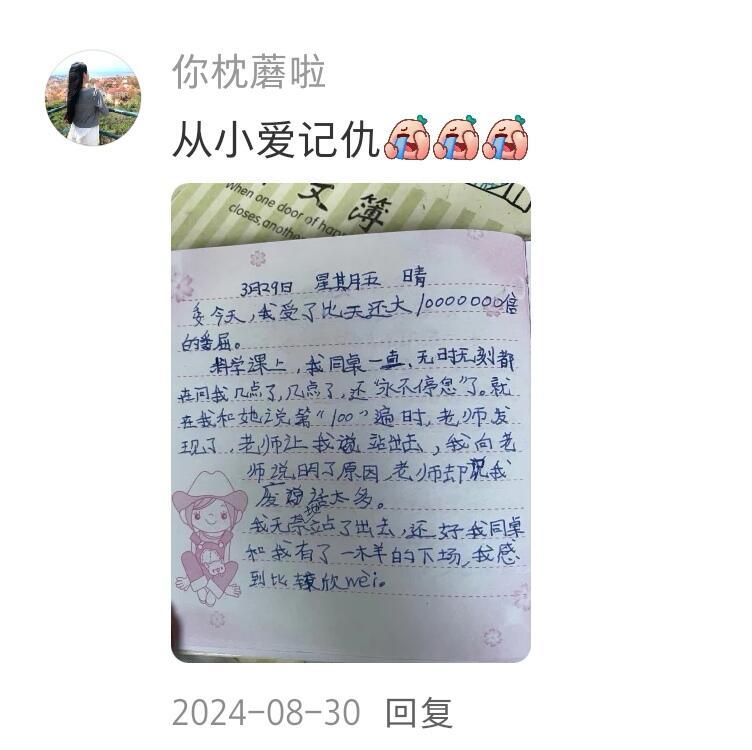 你枕蘑啦
从小爱记仇
文簿
When one door of hap
closes, another
3月29日 星期五 晴
今天，我受了比天还大10000000倍
的委屈。
科学课上，我同桌一直、无时无刻都
在问我几点了，几点了，还“永不停息”了。就
在我和她说第“100”遍时，老师发
现了，老师让我站出去，我向老
师说明了原因，老师却说我
废话太多。
我无奈地站了出去，还好我同桌
和我有了一样的下场，我感
到比较欣wèi。
2024-08-30 回复